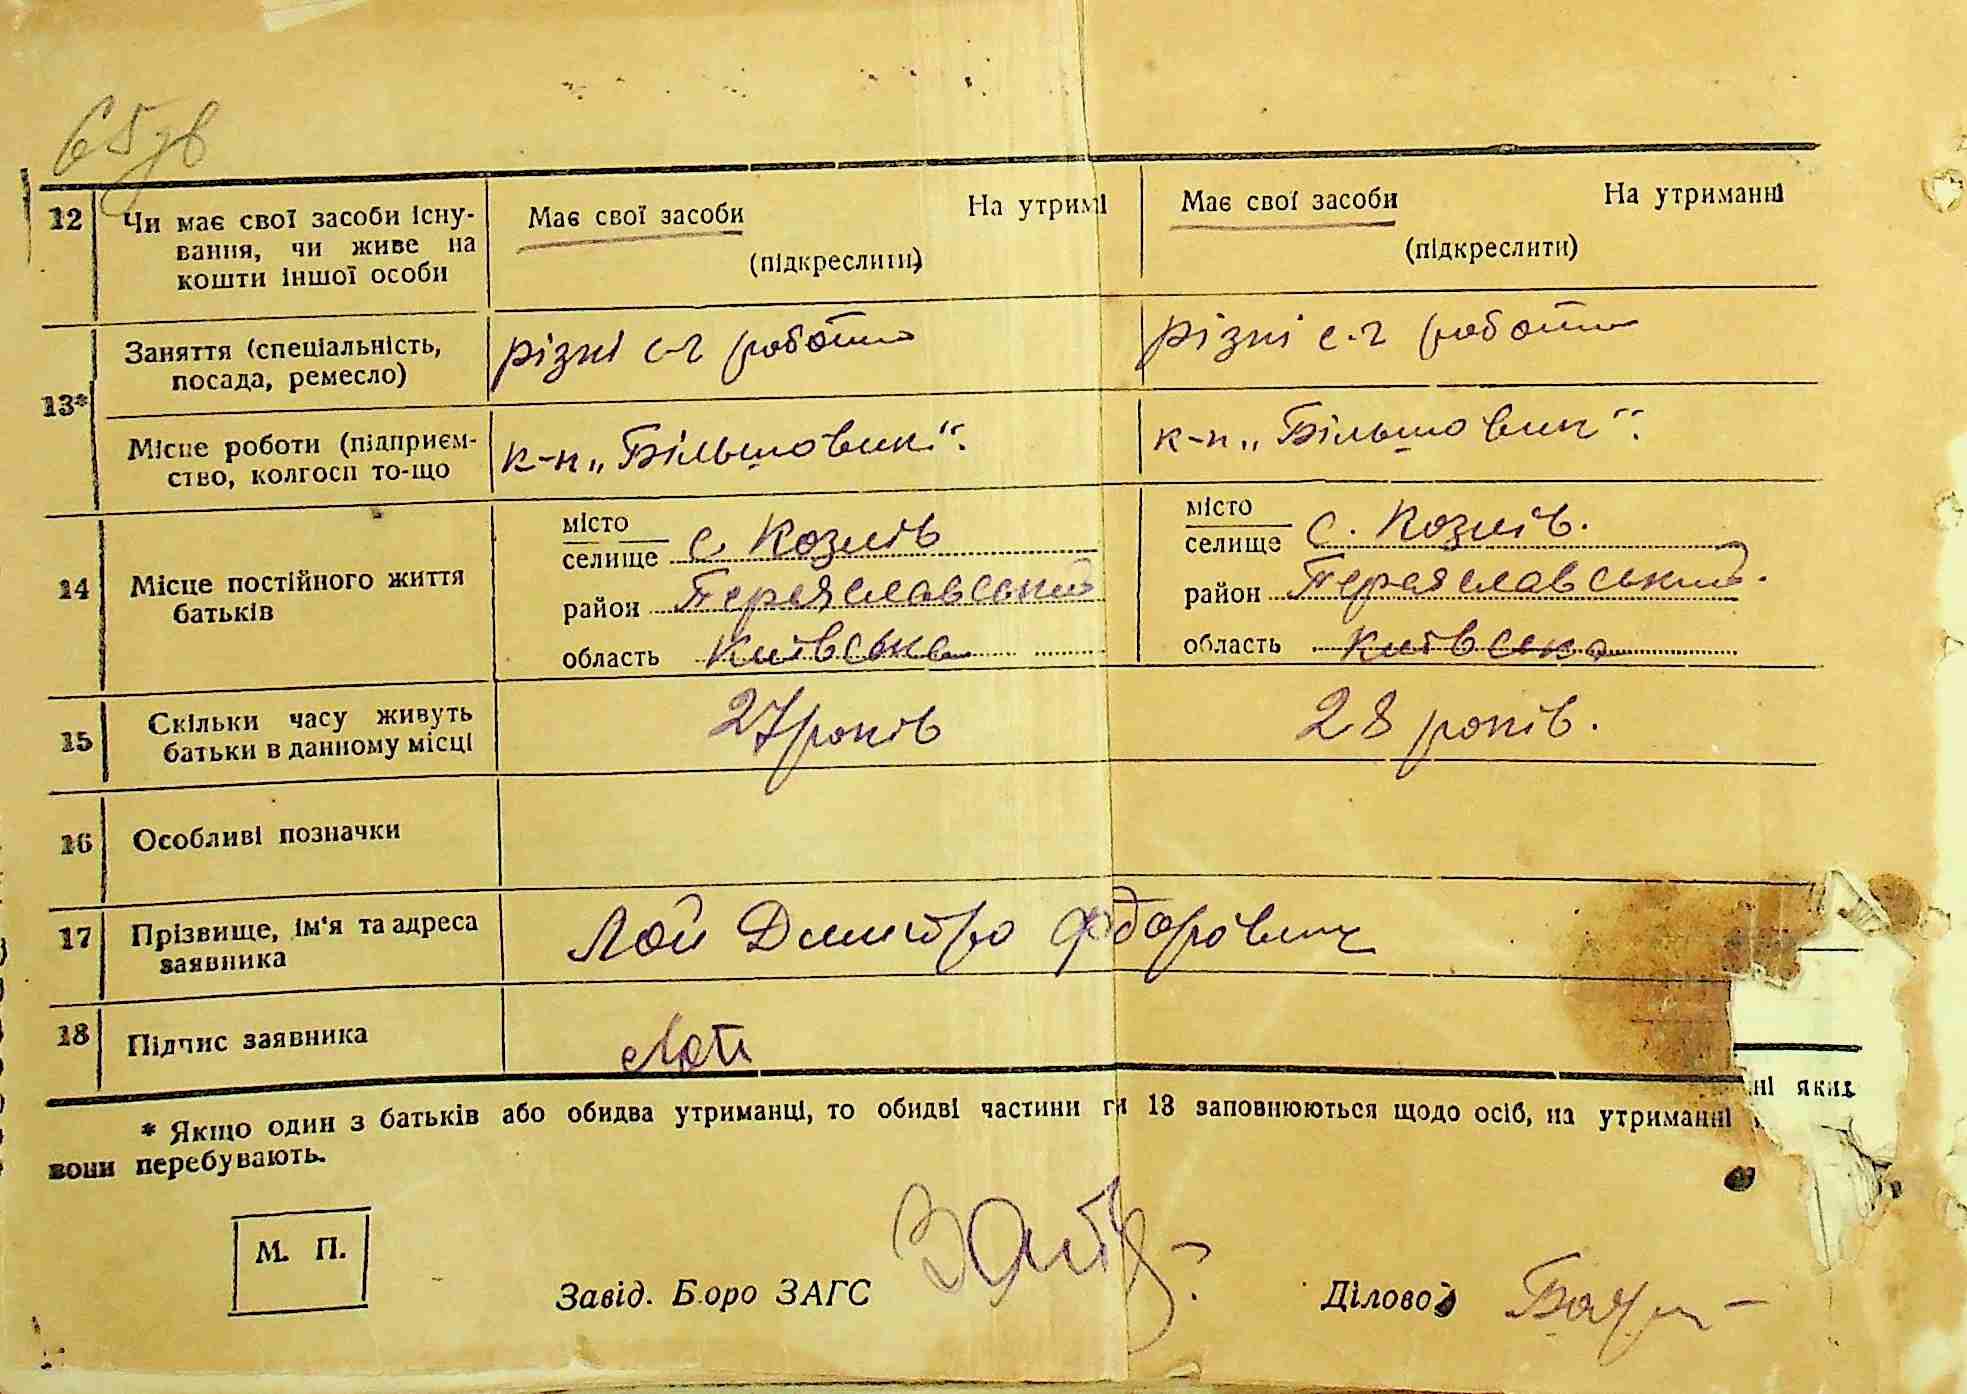 65 зв
12 Чи має свої засоби існу- Має свої засоби На утрим і Має свої засоби На утриманні
вання, чи живе на (підкреслити) (підкреслити)
кошти іншої особи
13* Заняття (спеціальність, різні с-г роботи різні с-г роботи
посада, ремесло)
Місце роботи (підприєм- к-п „Більшовик". к-п „Більшовик".
ство, колгосп то-що
14 Місце постійного життя батьків
місто селище с. Козлів місто селище с. Козлів.
район Переяславський район Переяславський.
область Київська область Київська
15 Скільки часу живуть 27 років 28 років.
батьки в данному місці
16 Особливі позначки
17 Прізвище, ім'я та адреса Лой Дмитро Фдорович
заявника
18 Підпис заявника Лой
* Якщо один з батьків або обидва утриманці, то обидві частини г 13 заповнюються щодо осіб, на утриманні яких
вони перебувають.
М. П.
Завід. Бюро ЗАГС Діловод